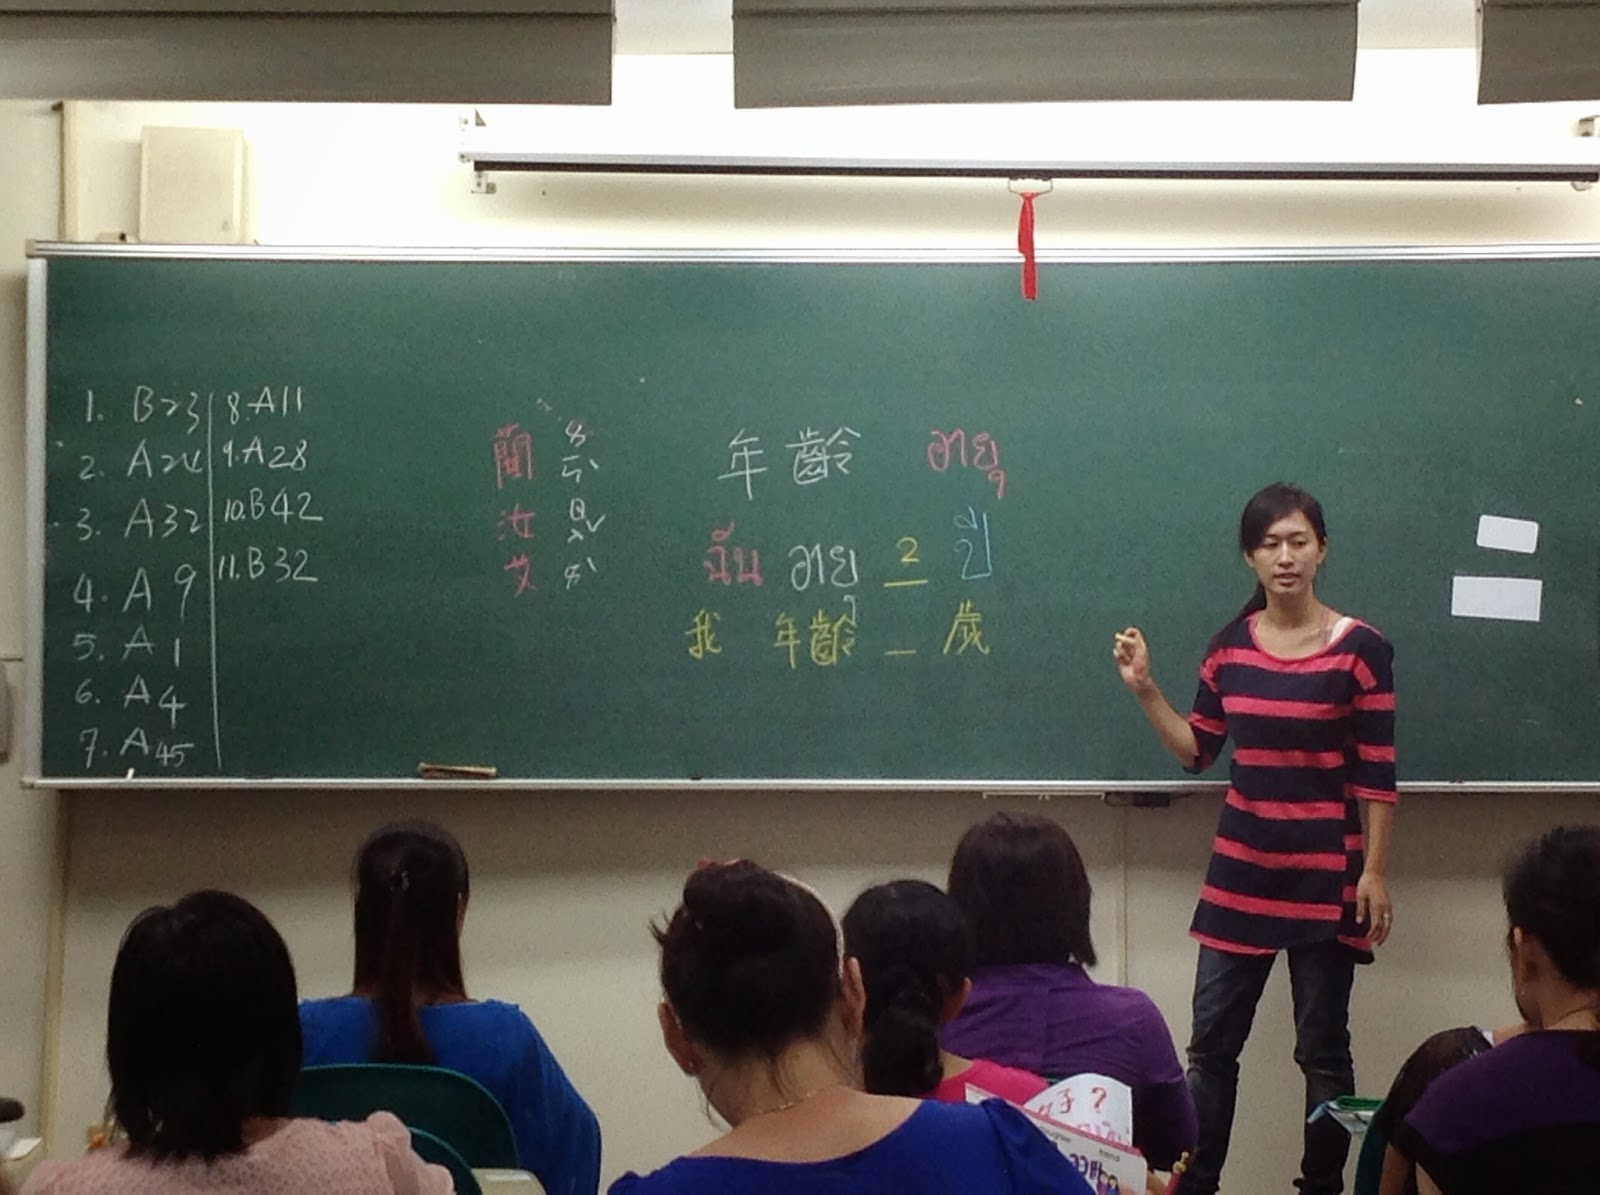 1. B23
2. A24
3. A32
4. A 9
5. A 1
6. A 4
7. A 45
8. A11
9. A28
10. B42
11. B32
蘭 ㄌㄢˊ
汝 ㄖㄨˇ
艾 ㄞˋ
年齡 อายุ
ฉัน อายุ 2 ปี
我 年齡 _ 歲